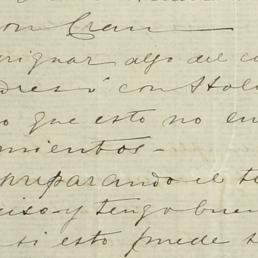 on Cran
eriguar algo del co
dres ó con Stol
o que esto no en
mientos-
preparando el te
ciso y tengo buen
si esto puede s